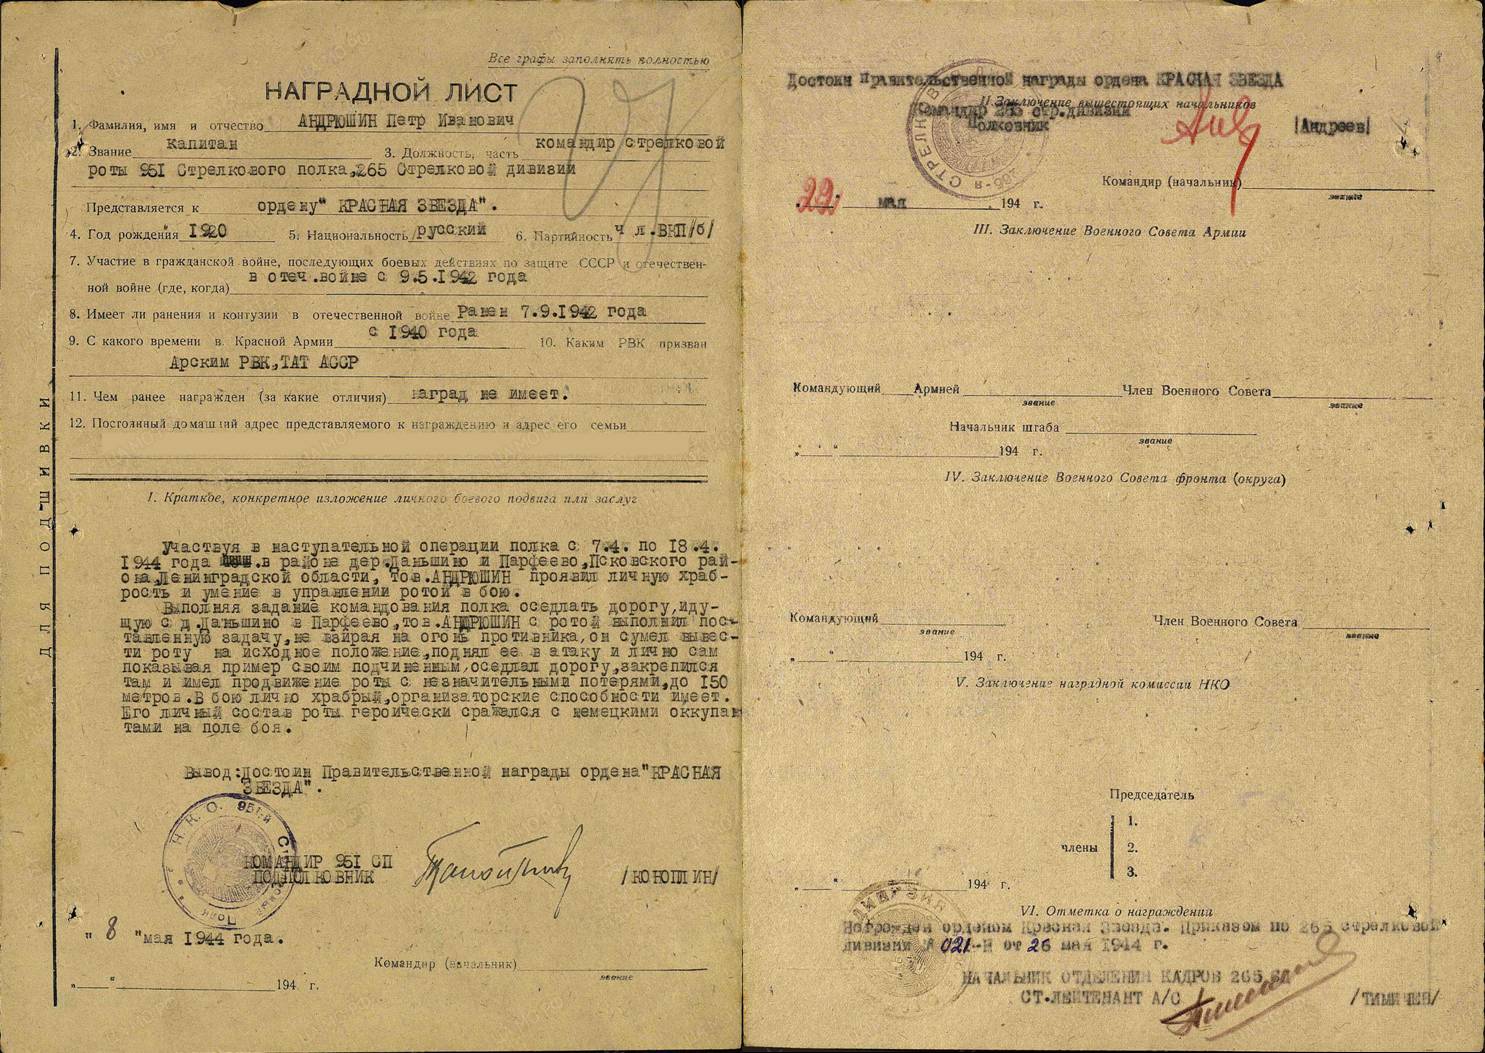 Все графы заполнять полностью
НАГРАДНОЙ ЛИСТ
1. Фамилия, имя и отчество АНДРЮШИН Петр Иванович
2. Звание Капитан 3. Должность, часть командир стрелковой
роты 951 Стрелкового полка,265 Стрелковой дивизии
Представляется к ордену" КРАСНАЯ ЗВЕЗДА".
4. Год рождения 1920 5. Национальность русский 6. Партийность ч л.ВКП/б/
7. Участие в гражданской войне, последующих боевых действиях по защите СССР и отечествен-
ной войне (где, когда) в отеч.войне с 9.5.1942 года
8. Имеет ли ранения и контузии в отечественной войне Ранен 7.9.1942 года
9. С какого времени в Красной Армии с 1940 года 10. Каким РВК призван
Арским РВК,ТАТ АССР
11. Чем ранее награжден (за какие отличия) наград не имеет.
12. Постоянный домашний адрес представляемого к награждению и адрес его семьи
ДЛЯ ПОДШИВКИ
I. Краткое, конкретное изложение личного боевого подвига или заслуг
Участвуя в наступательной операции полка с 7.4. по 18.4.
1944 года в районе дер.Даньшино и Парфеево,Псковского рай-
она,Ленинградской области, тов.АНДРЮШИН проявил личную храб-
рость и умение в управлении ротой в бою.
Выполняя задание командования полка оседлать дорогу,иду-
щую с д.Даньшино в Парфеево,тов.АНДРЮШИН с ротой выполнил пос-
тавленную задачу,не взирая на огонь противника,он сумел вывес-
ти роту на исходное положение,поднял ее в атаку и лично сам
показывая пример своим подчиненным,оседлал дорогу,закрепился
там и имел продвижение роты с незначительными потерями,до 150
метров.В бою лично храбрый,организаторские способности имеет.
Его личный состав роты героически сражался с немецкими оккупан
тами на поле боя.
Вывод:Достоин Правительственной награды ордена"КРАСНАЯ
ЗВЕЗДА".
Н.К.О. 951-й Стрелковый Полк
КОМАНДИР 951 СП
ПОДПОЛКОВНИК /КОНОПЛИН/
" 8 "мая 1944 года.
Командир (начальник)
звание
" " 194 г.
Достоин Правительственной награды ордена КРАСНАЯ ЗВЕЗДА
II. Заключение вышестоящих начальников
Командир 265 стр.дивизии
Полковник /Андреев/
Командир (начальник)
звание
22 мая 194 г.
III. Заключение Военного Совета Армии
Командующий Армией Член Военного Совета
звание звание
Начальник штаба
звание
" " 194 г.
IV. Заключение Военного Совета фронта (округа)
Командующий Член Военного Совета
звание звание
" " 194 г.
V. Заключение наградной комиссии НКО
Председатель
члены
1.
2.
3.
" " 194 г.
VI. Отметка о награждении
Награжден орденом Красная Звезда. Приказом по 265 стрелковой
дивизии № 021-Н от 26 мая 1944 г.
НАЧАЛЬНИК ОТДЕЛЕНИЯ КАДРОВ 265 СД
СТ.ЛЕЙТЕНАНТ А/С /ТИМИЧЕВ/